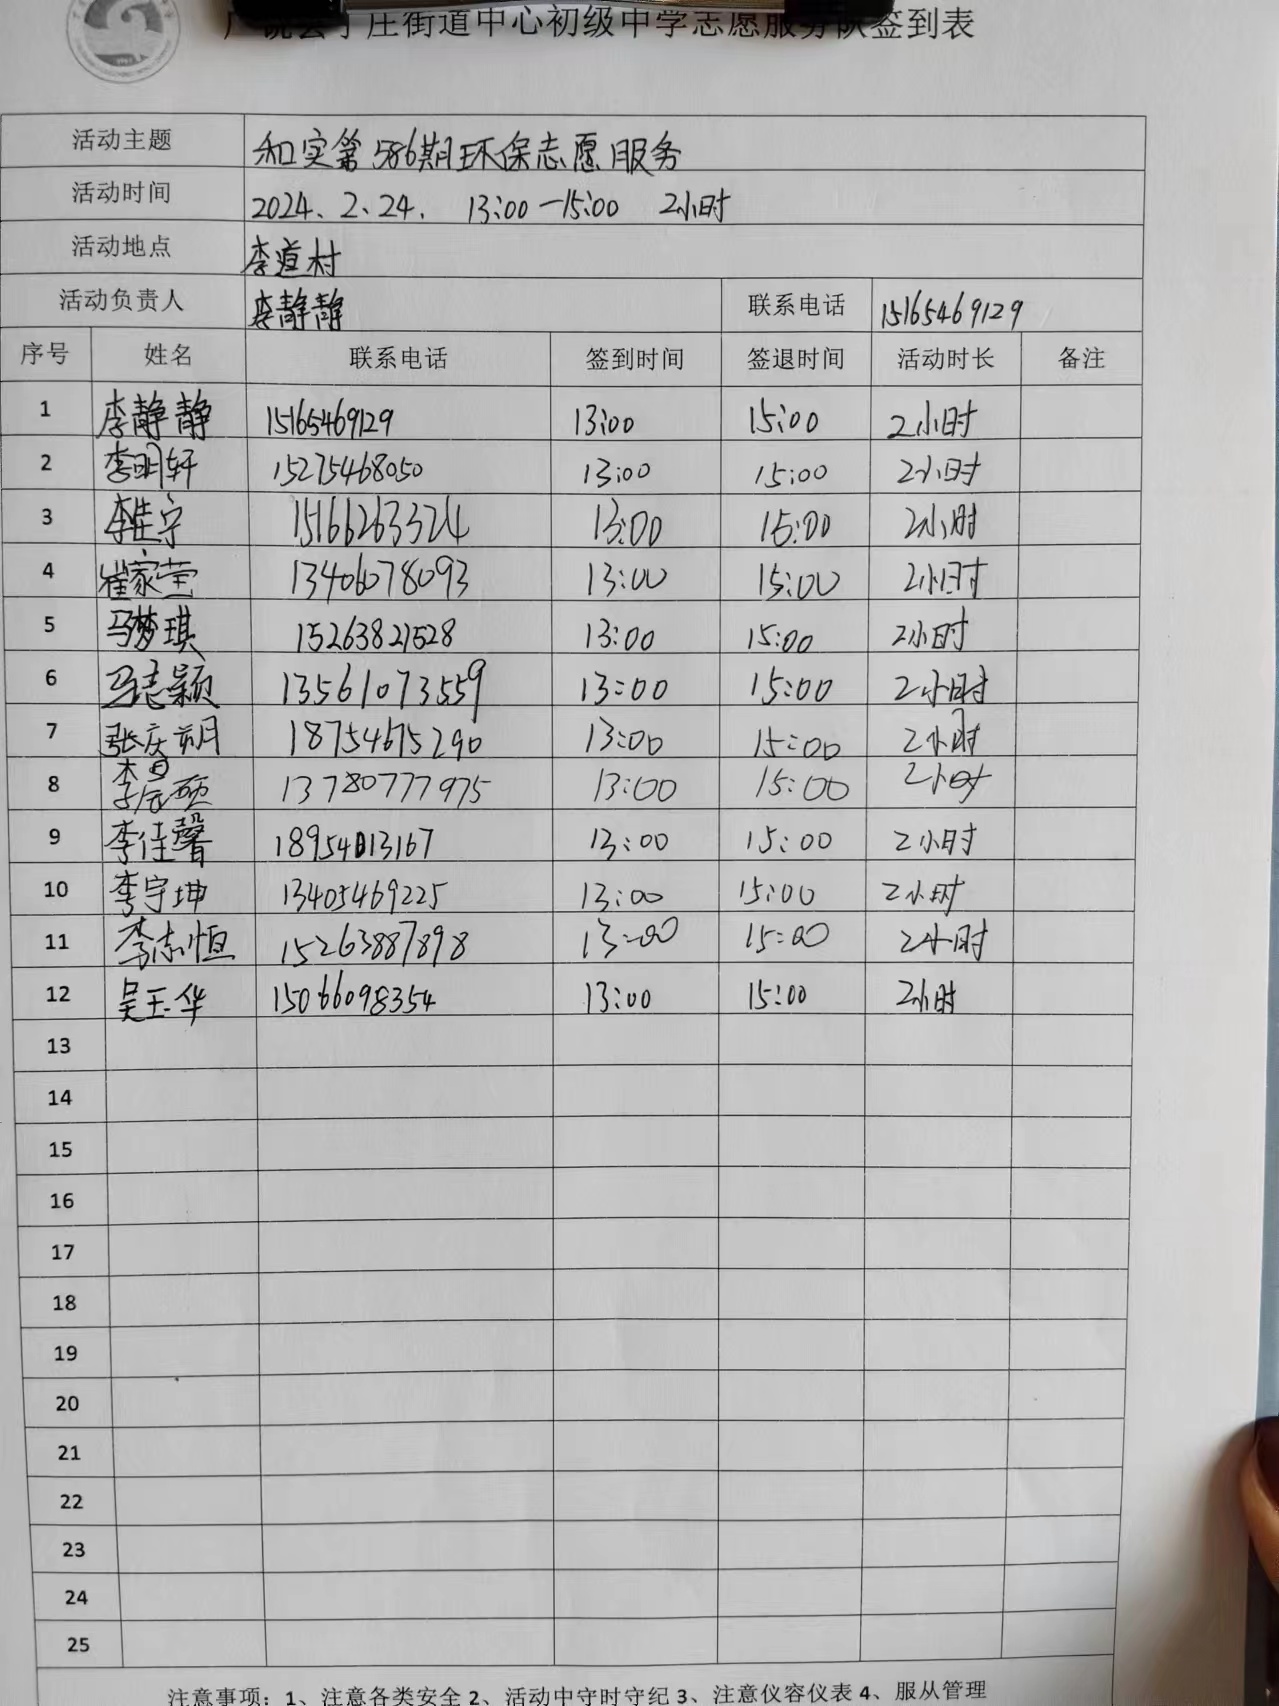 广饶县丁庄街道中心初级中学志愿服务队签到表
活动主题 和实第586期环保志愿服务
活动时间 2024、2、24. 13:00—15:00 2小时
活动地点 李道村
活动负责人 李静静 联系电话 15165469129
序号 姓名 联系电话 签到时间 签退时间 活动时长 备注
1 李静静 15165469129 13:00 15:00 2小时
2 李明轩 15275468050 13:00 15:00 2小时
3 李佳宁 15166263324 13:00 15:00 2小时
4 崔家莹 13406078093 13:00 15:00 2小时
5 马梦琪 15263821528 13:00 15:00 2小时
6 马志颖 13561073559 13:00 15:00 2小时
7 张庆 18754675290 13:00 15:00 2小时
8 13780777975 13:00 15:00 2小时
9 李佳馨 18954013167 13:00 15:00 2小时
10 李宇坤 13405469225 13:00 15:00 2小时
11 李志恒 15263887898 13:00 15:00 2小时
12 吴玉华 15066098354 13:00 15:00 2小时
13
14
15
16
17
18
19
20
21
22
23
24
25
注意事项：1、注意各类安全 2、活动中守时守纪 3、注意仪容仪表 4、服从管理